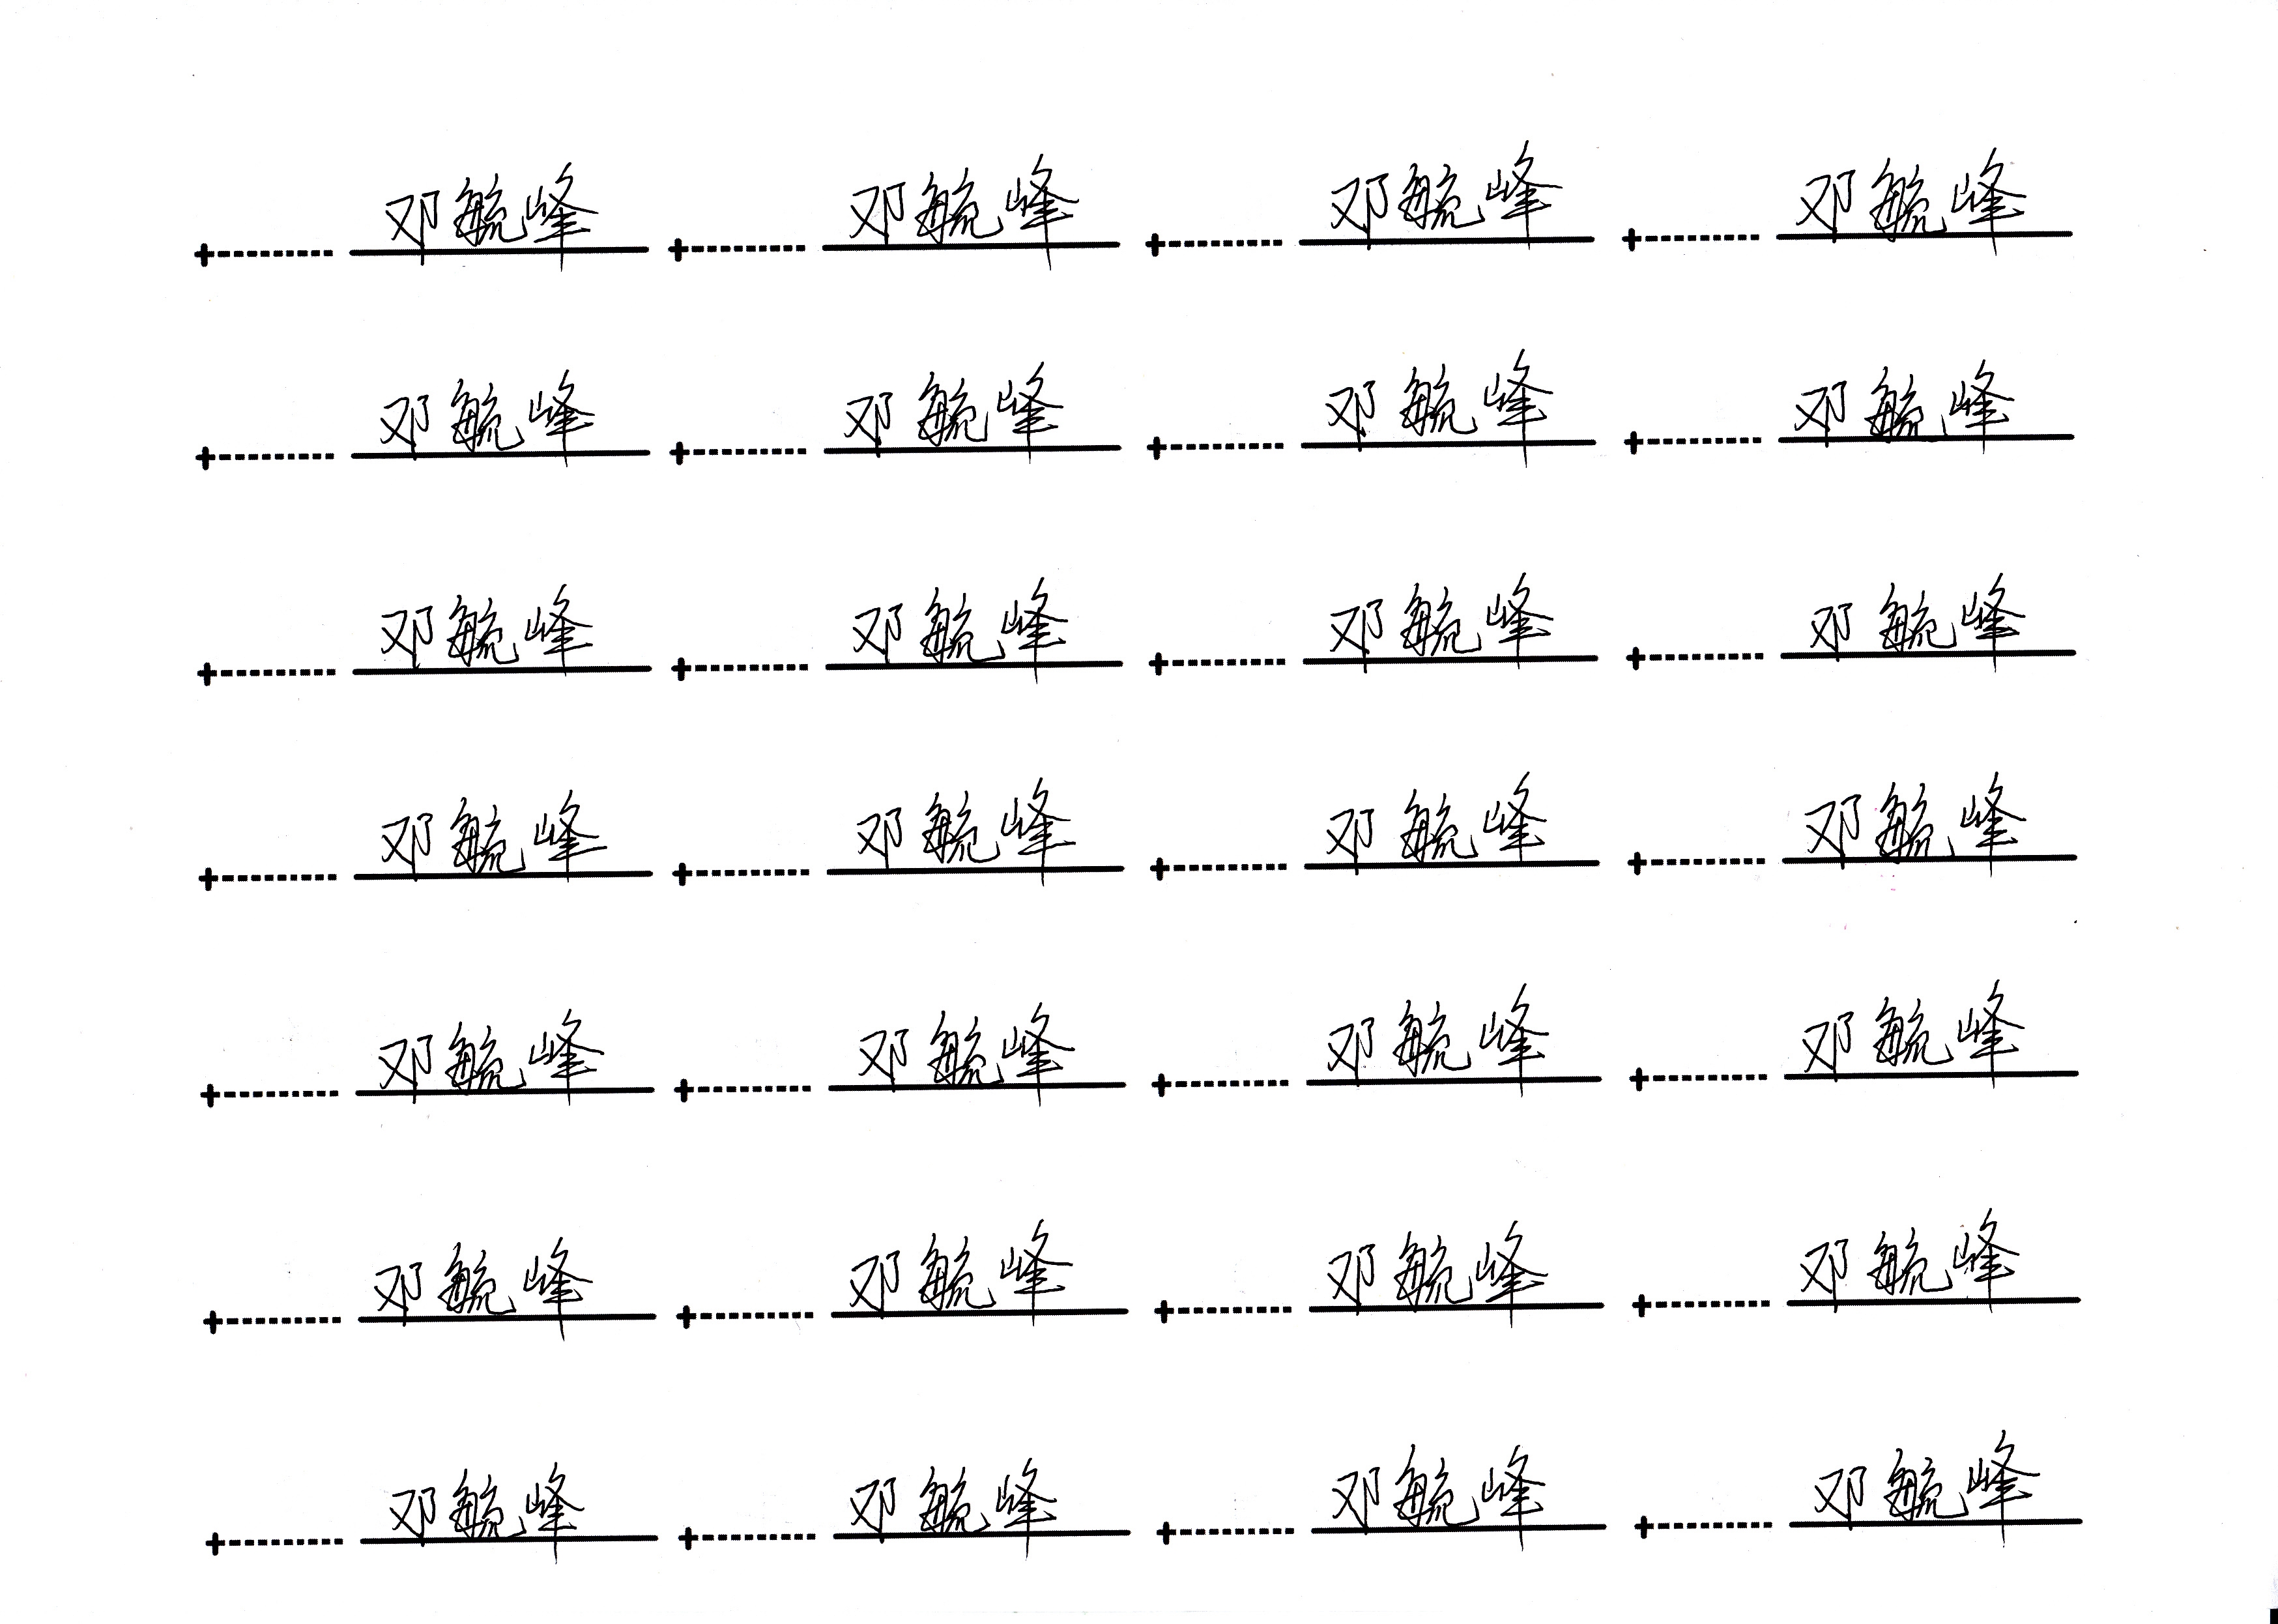 邓毓峰 邓毓峰 邓毓峰 邓毓峰
邓毓峰 邓毓峰 邓毓峰 邓毓峰
邓毓峰 邓毓峰 邓毓峰 邓毓峰
邓毓峰 邓毓峰 邓毓峰 邓毓峰
邓毓峰 邓毓峰 邓毓峰 邓毓峰
邓毓峰 邓毓峰 邓毓峰 邓毓峰
邓毓峰 邓毓峰 邓毓峰 邓毓峰